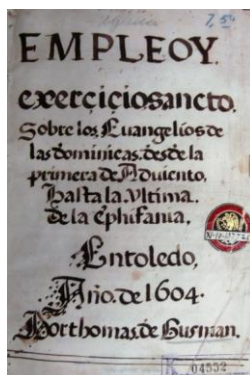 7,50
EMPLEOY.
exerçiçiosancto.
Sobre los Euangelios de
las dominicas. desde la
primera de Aduiento,
Hasta la Vltima.
de la Ephifania.
Entoledo,
Año. de 1604.
Por thomas. de Gusman.
K 04552